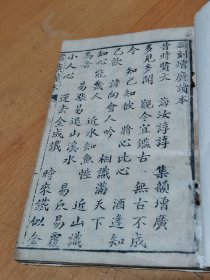 新刻增廣讀本
昔時賢文 誨汝諄諄 集韻增廣
多見多聞 觀今宜鑑古 無古不成
今 知己知彼 將心比心 酒逢知
己飲 詩向會人吟 相識滿天下
知心能幾人 近水知魚性 近山識
鳥音 易漲易退山溪水 易反易覆
小人心 運去金成鐵 時來鐵似金